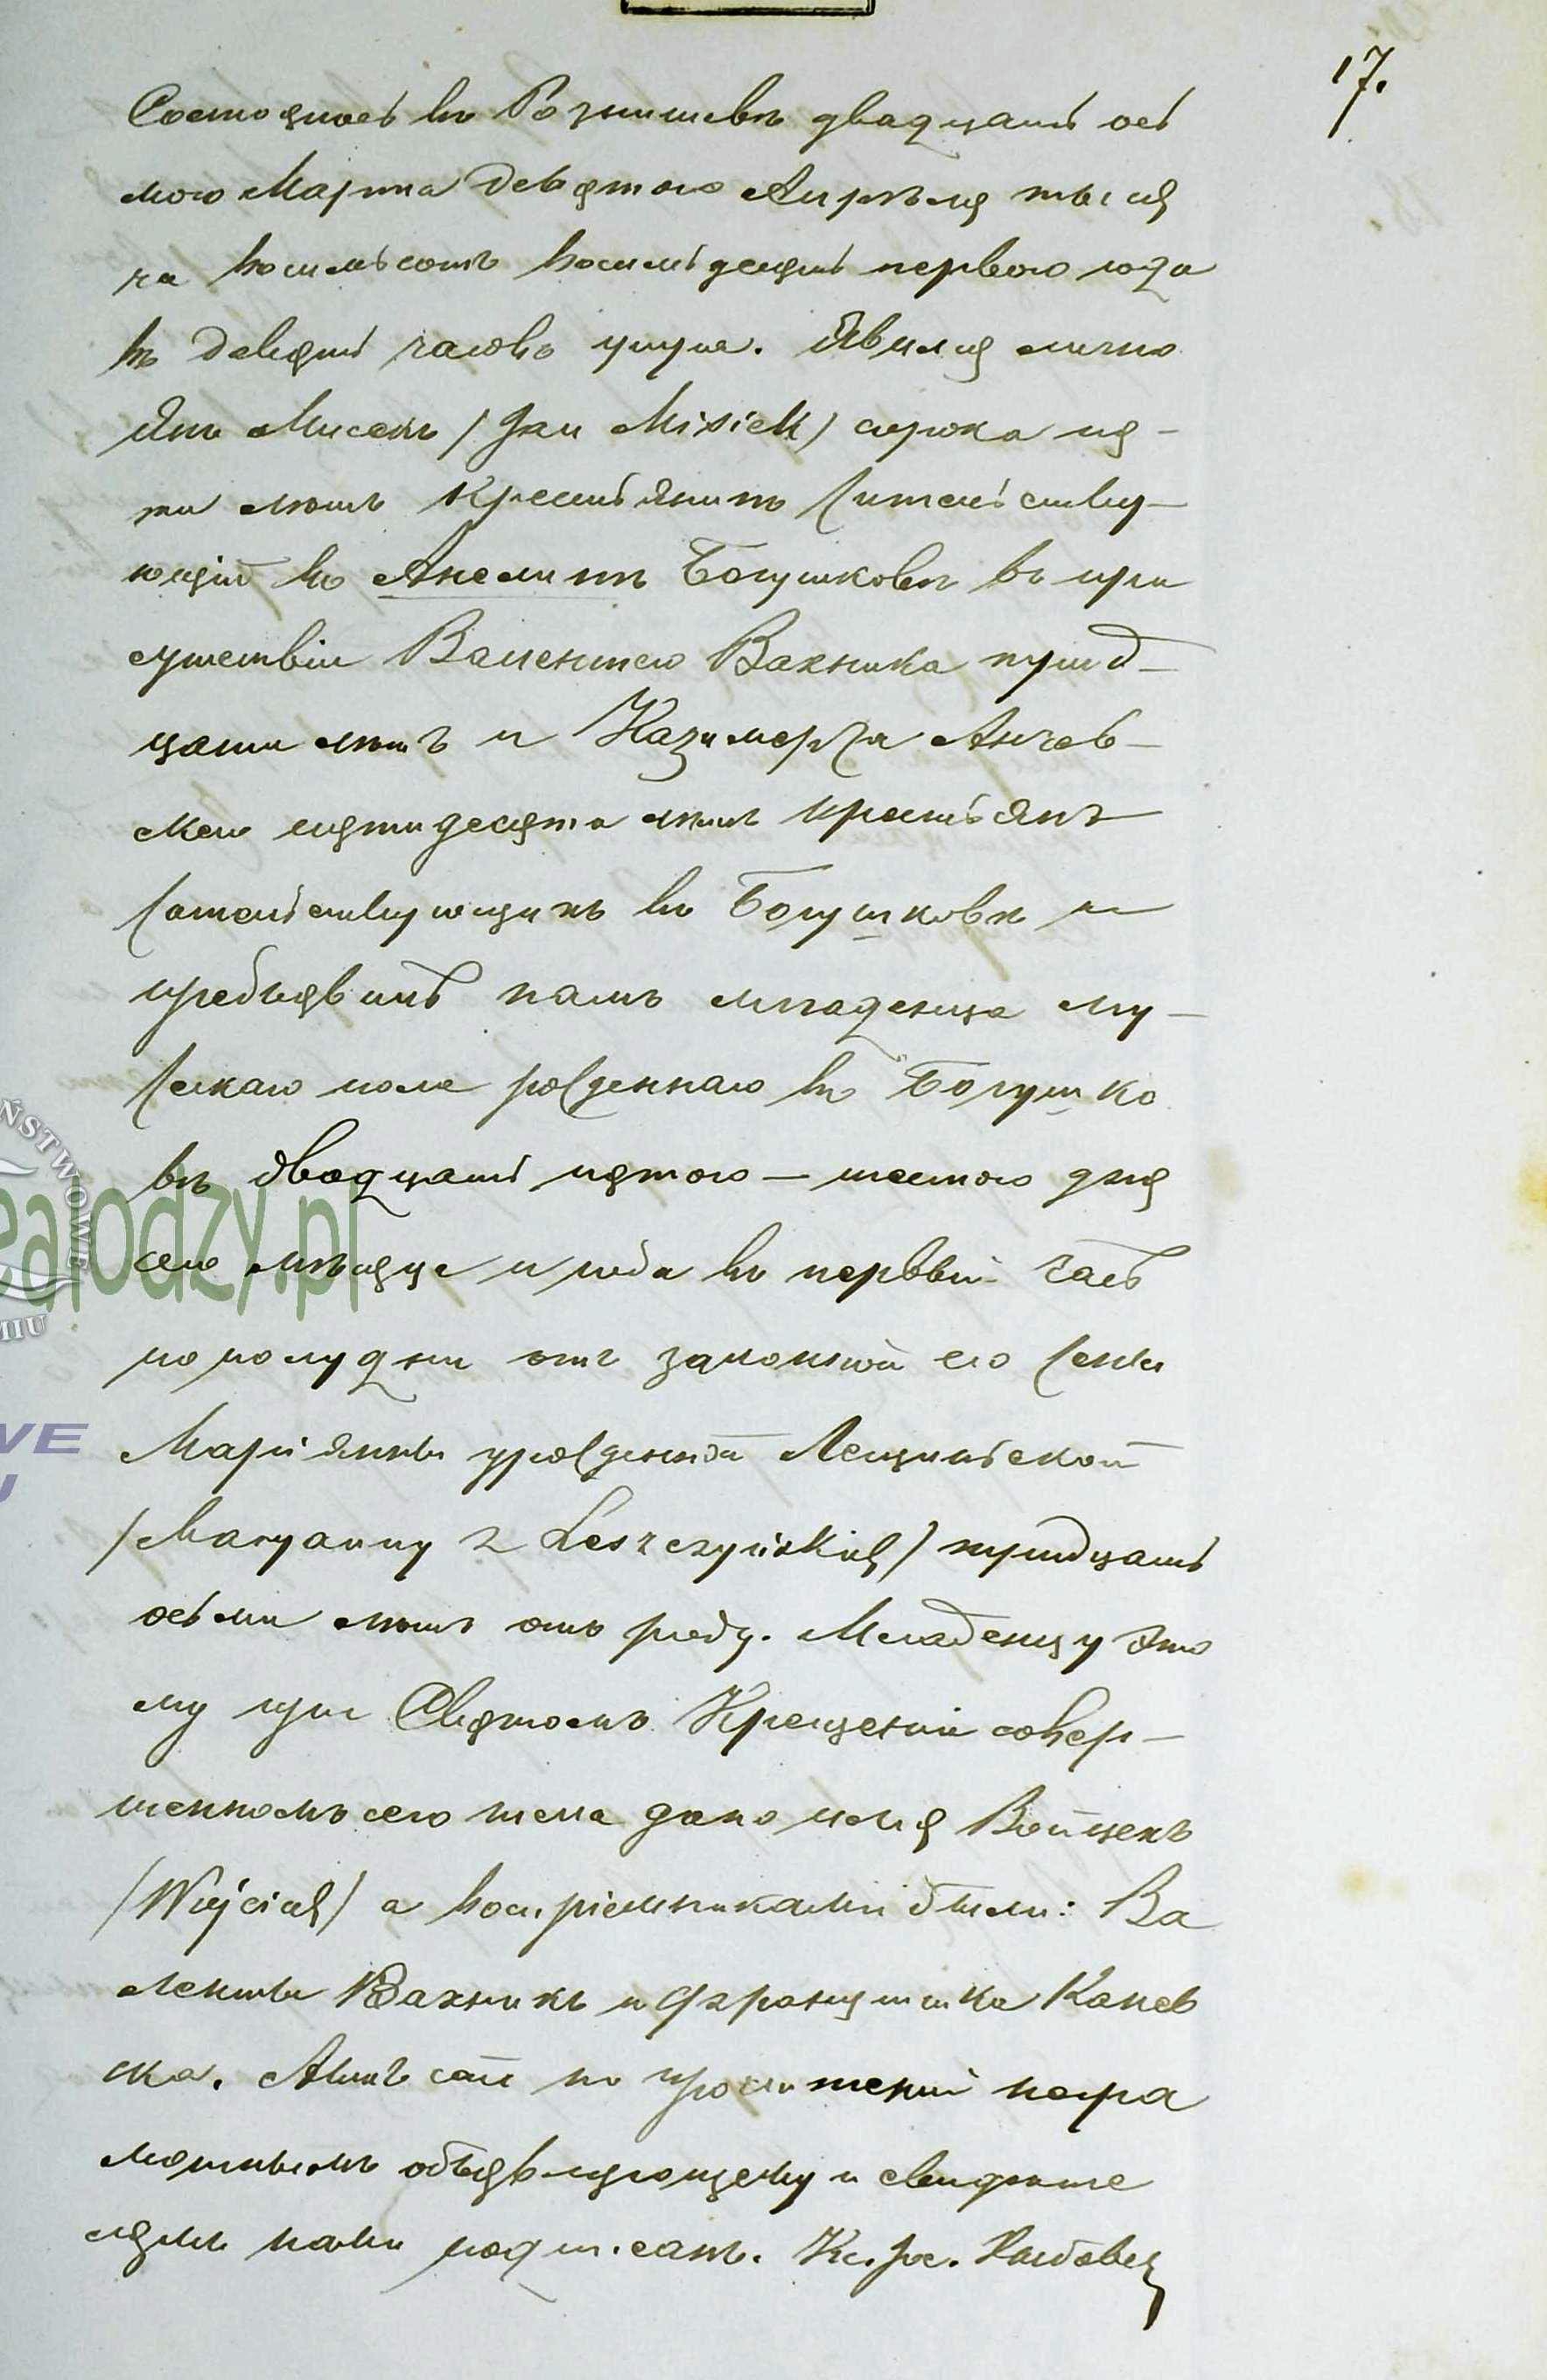 17.
Состоялось въ Рознишевѣ двадцать ось
мого Марта девятого Апрѣля тыся
ча восемьсотъ восемьдесятъ первого года
въ девять часовъ утра. Явился лично
Янъ Мисекъ /Jan Misiek/ сорока пя-
ти лѣтъ крестьянинъ жительству-
ющій въ Анелинѣ Богушковѣ въ при
сутствіи Валентего Вахника трид-
цати лѣтъ и Казимержа
ского пятидесяти лѣтъ крестьянъ
жительствующихъ въ Богушковѣ и
предъявилъ намъ младенца му-
жскаго пола рожденнаго въ Богушко
вѣ двадцать пятого — шестого дня
сего мѣсяца и года въ первый часъ
пополудни отъ законной его жены
Маріянны урожденной Лещинской
/Maryanny z Leszczyńskich/ тридцать
осьми лѣтъ отъ роду. Младенцу это
му при Святомъ Крещеніи совер-
шенномъ сего числа дано имя Войцехъ
/Wojciech/ а воспріемниками были: Ва
ленты Вахникъ и Францишка Канев
ска. Актъ сей по прочтеніи негра
мотнымъ объявляющему и свидѣте
лямъ нами подписанъ. Кс.